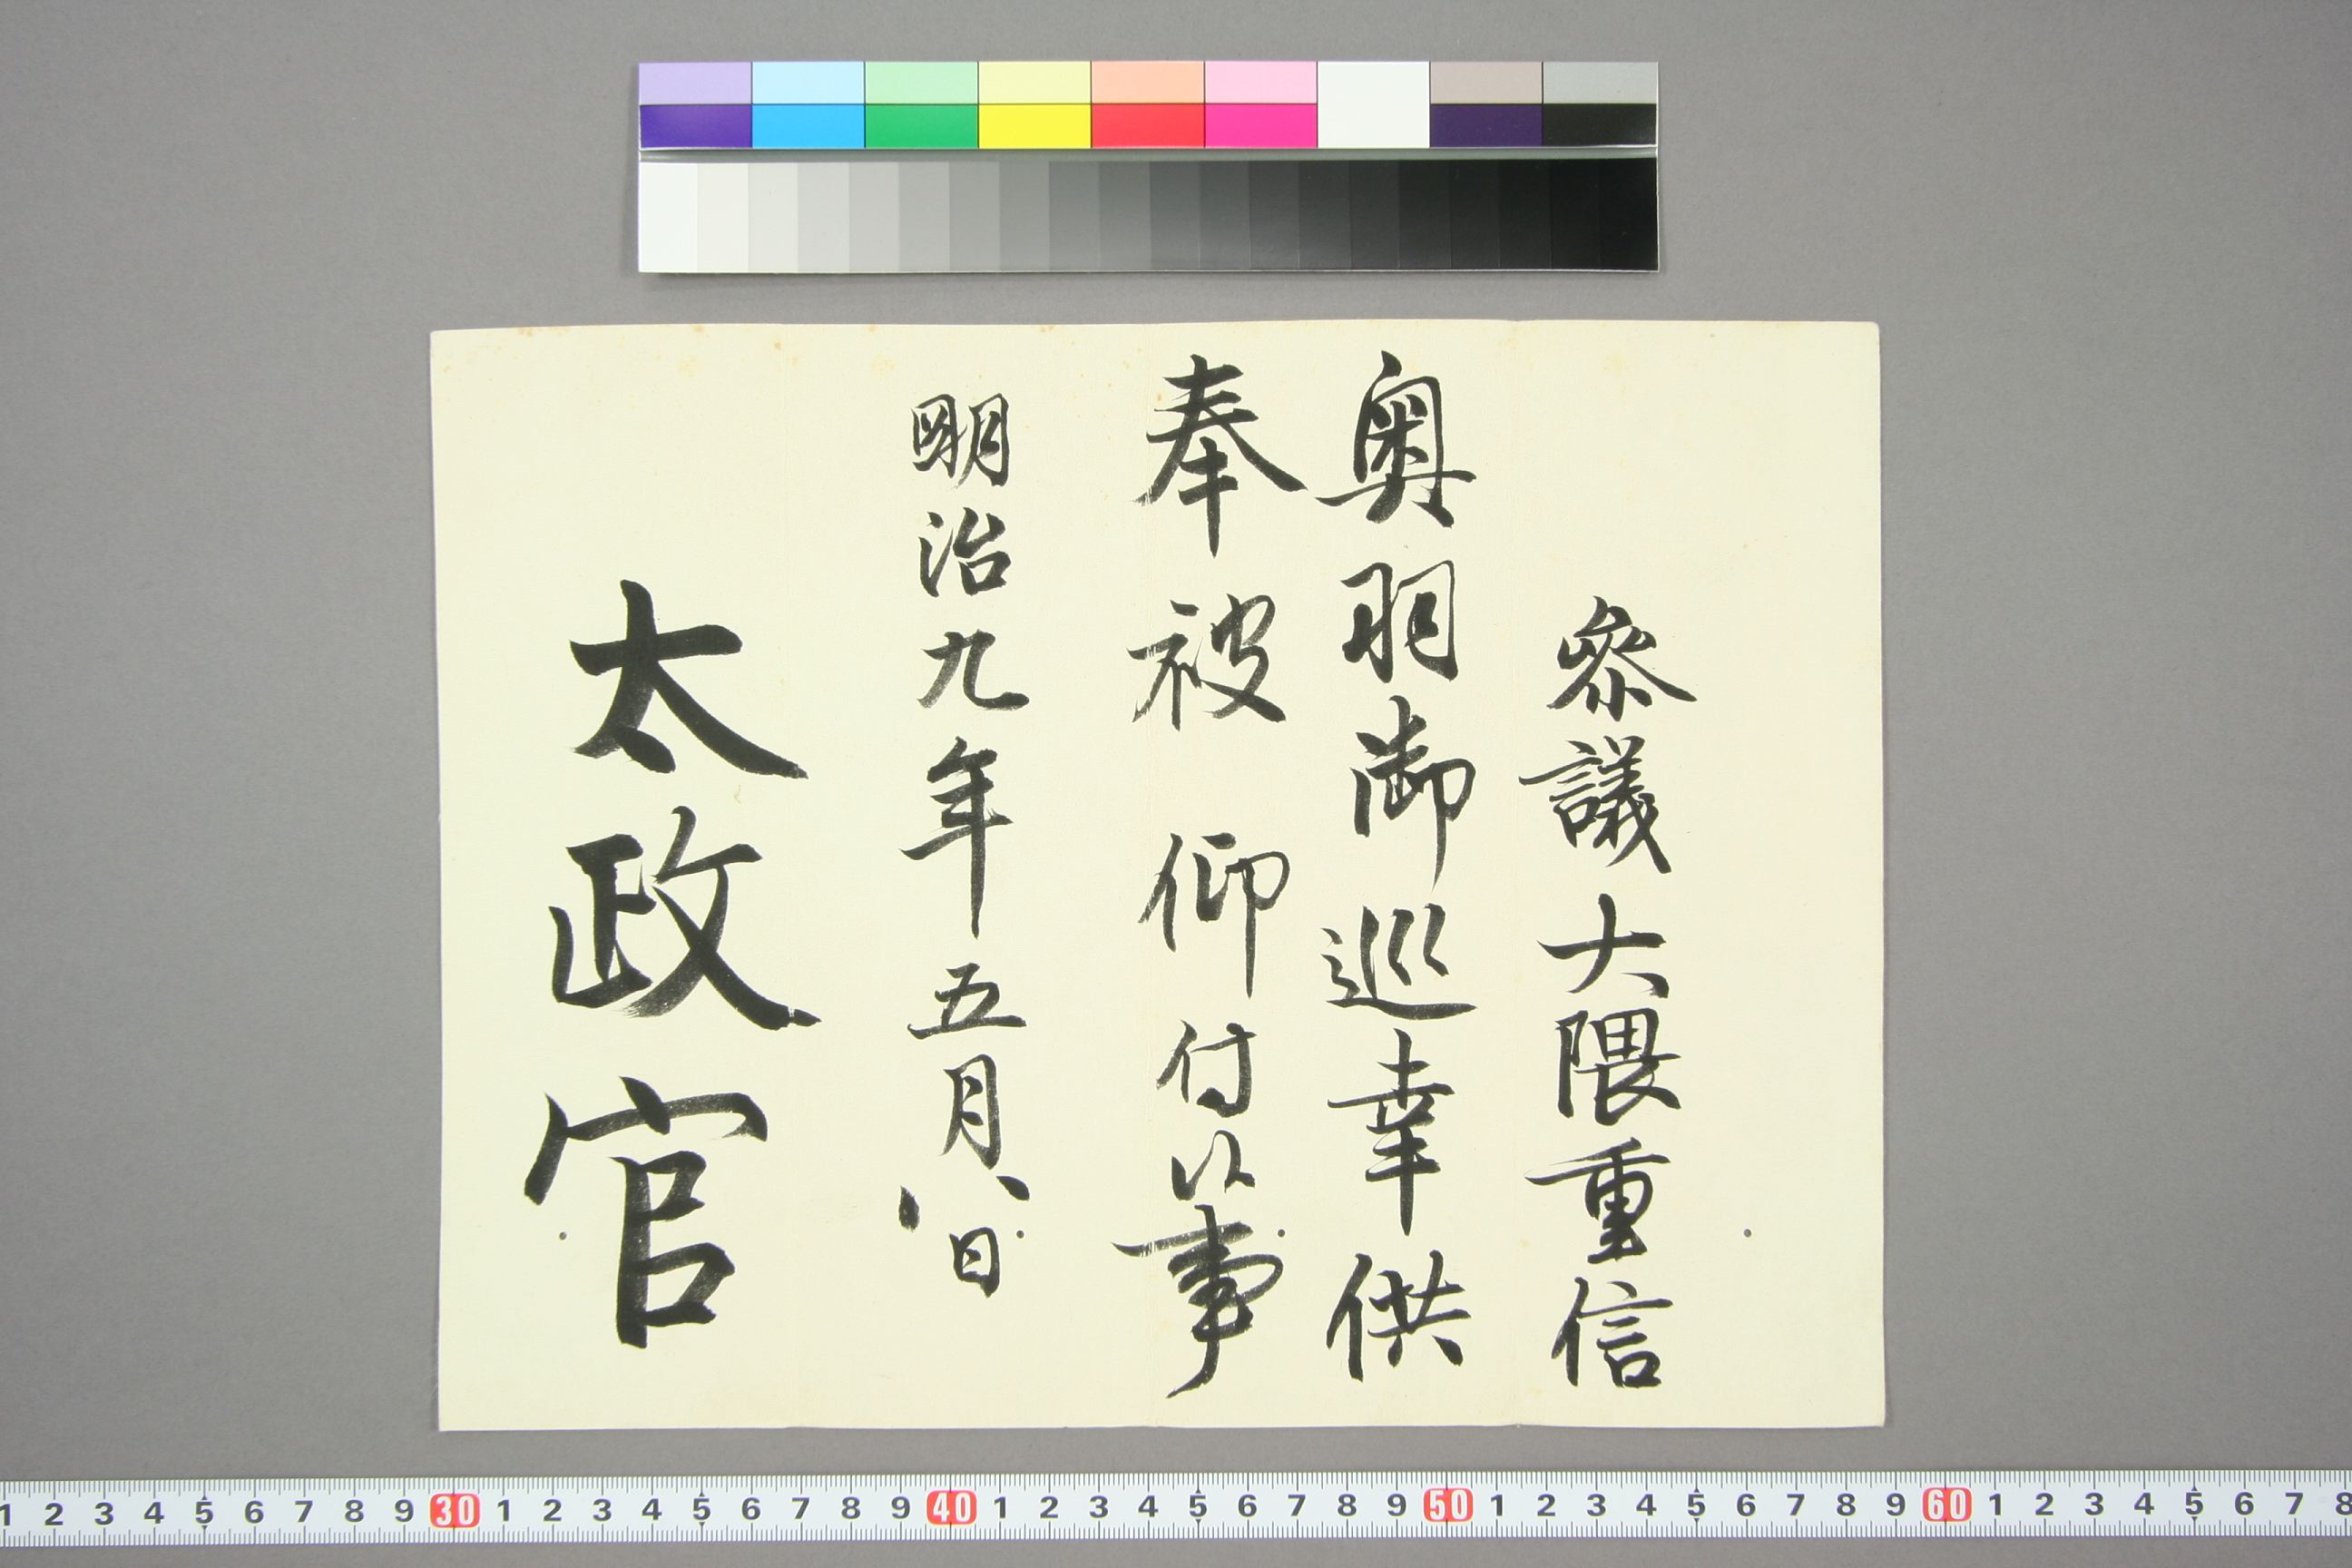 參議大隈重信
奥羽御巡幸供
奉被 仰付候事
明治九年五月八日
太政官
1 2 3 4 5 6 7 8 9 30 1 2 3 4 5 6 7 8 9 40 1 2 3 4 5 6 7 8 9 50 1 2 3 4 5 6 7 8 9 60 1 2 3 4 5 6 7 8